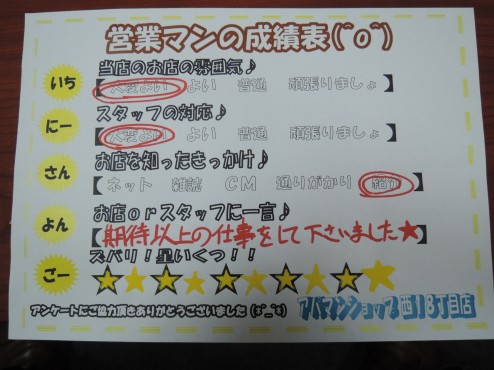 営業マンの成績表(^o^)
いち
当店のお店の雰囲気♪
【大変よい よい 普通 頑張りましょ】
にー
スタッフの対応♪
【大変よい よい 普通 頑張りましょ】
さん
お店を知ったきっかけ♪
【ネット 雑誌 CM 通りがかり 紹介】
よん
お店orスタッフに一言♪
【期待以上の仕事をして下さいました★】
ごー
ズバリ!星いくつ!!
★★★★★★★★★★
アンケートにご協力頂きありがとうございました(*^_^*)
アパマンショップ西18丁目店